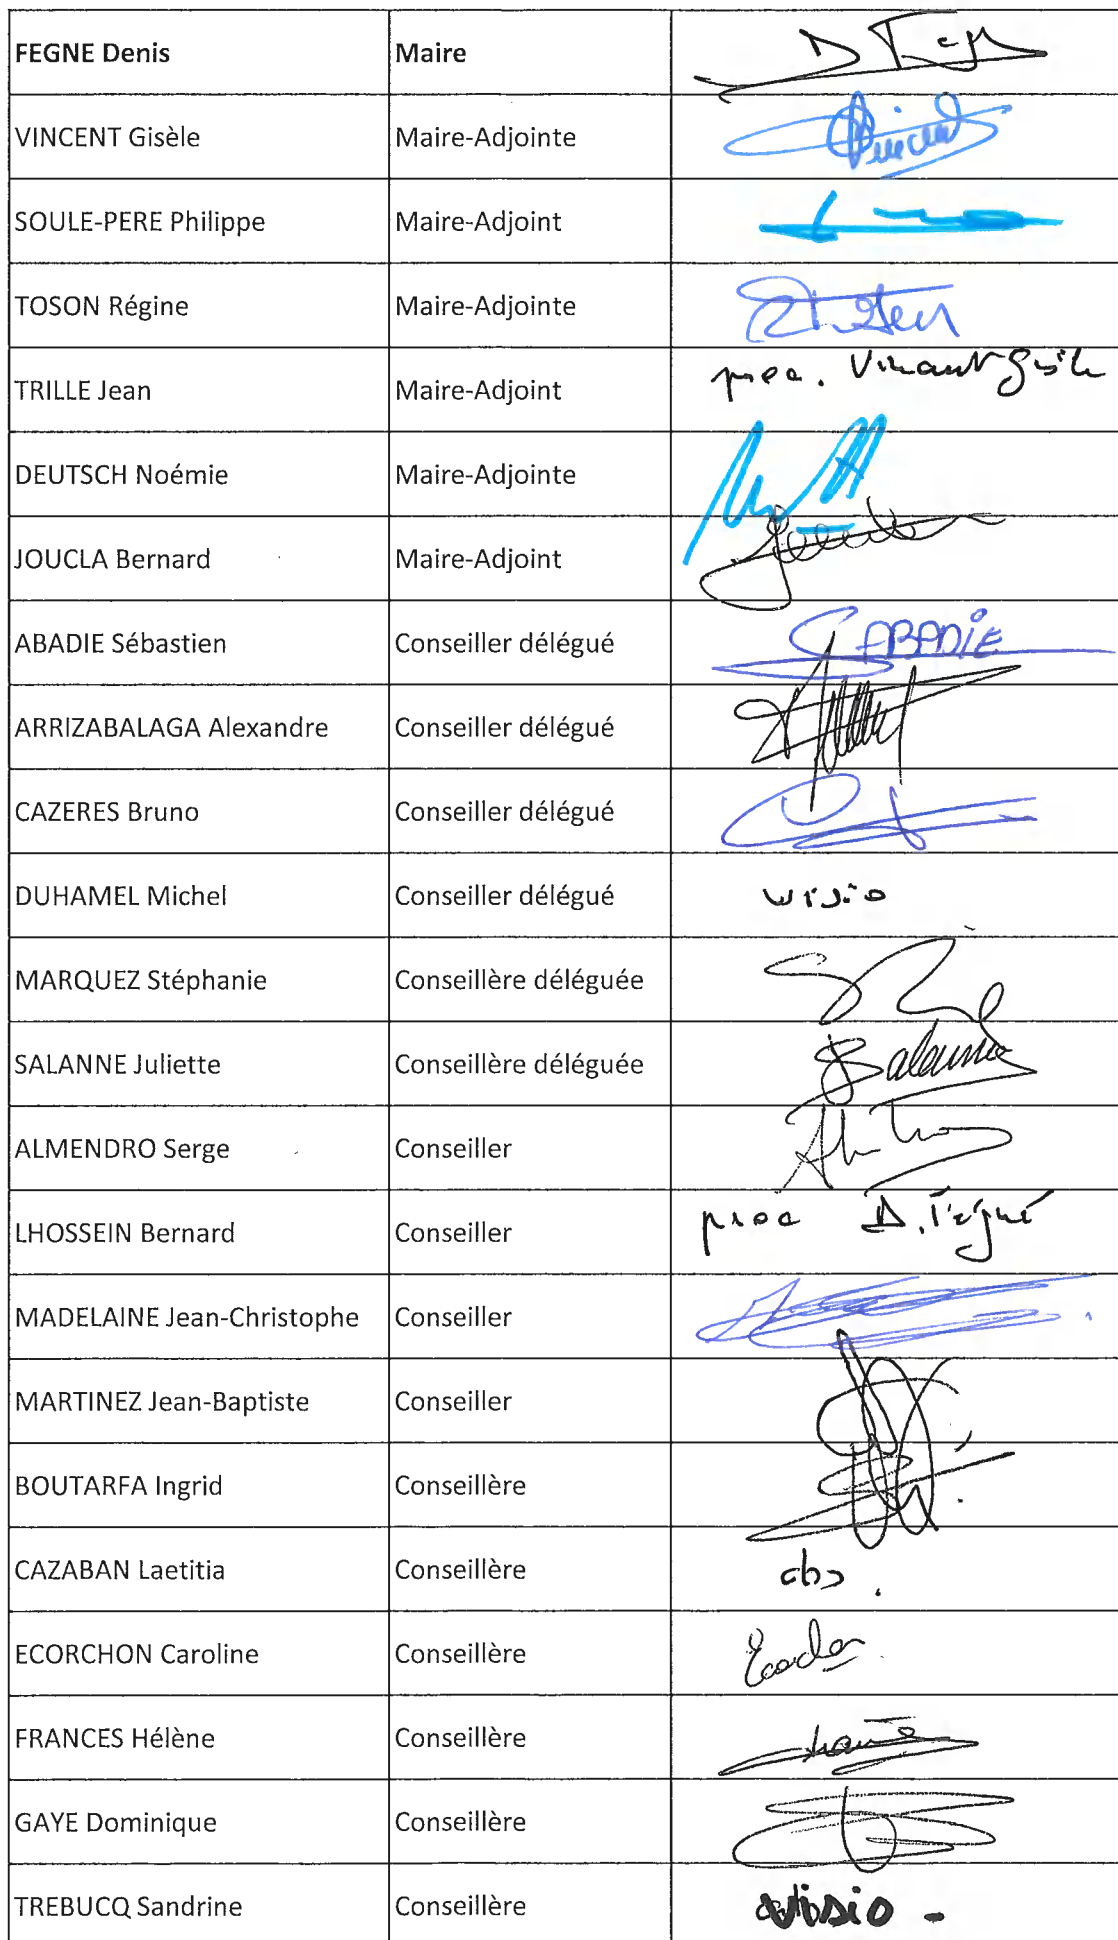 FEGNE Denis Maire D Feg
VINCENT Gisèle Maire-Adjointe Vincent
SOULE-PERE Philippe Maire-Adjoint
TOSON Régine Maire-Adjointe
TRILLE Jean Maire-Adjoint proc. Vincent Gisèle
DEUTSCH Noémie Maire-Adjointe
JOUCLA Bernard Maire-Adjoint
ABADIE Sébastien Conseiller délégué ABADIE
ARRIZABALAGA Alexandre Conseiller délégué
CAZERES Bruno Conseiller délégué
DUHAMEL Michel Conseiller délégué visio
MARQUEZ Stéphanie Conseillère déléguée
SALANNE Juliette Conseillère déléguée Salanne
ALMENDRO Serge Conseiller
LHOSSEIN Bernard Conseiller proc D. Fégné
MADELAINE Jean-Christophe Conseiller
MARTINEZ Jean-Baptiste Conseiller
BOUTARFA Ingrid Conseillère
CAZABAN Laetitia Conseillère abs.
ECORCHON Caroline Conseillère
FRANCES Hélène Conseillère
GAYE Dominique Conseillère
TREBUCQ Sandrine Conseillère visio -